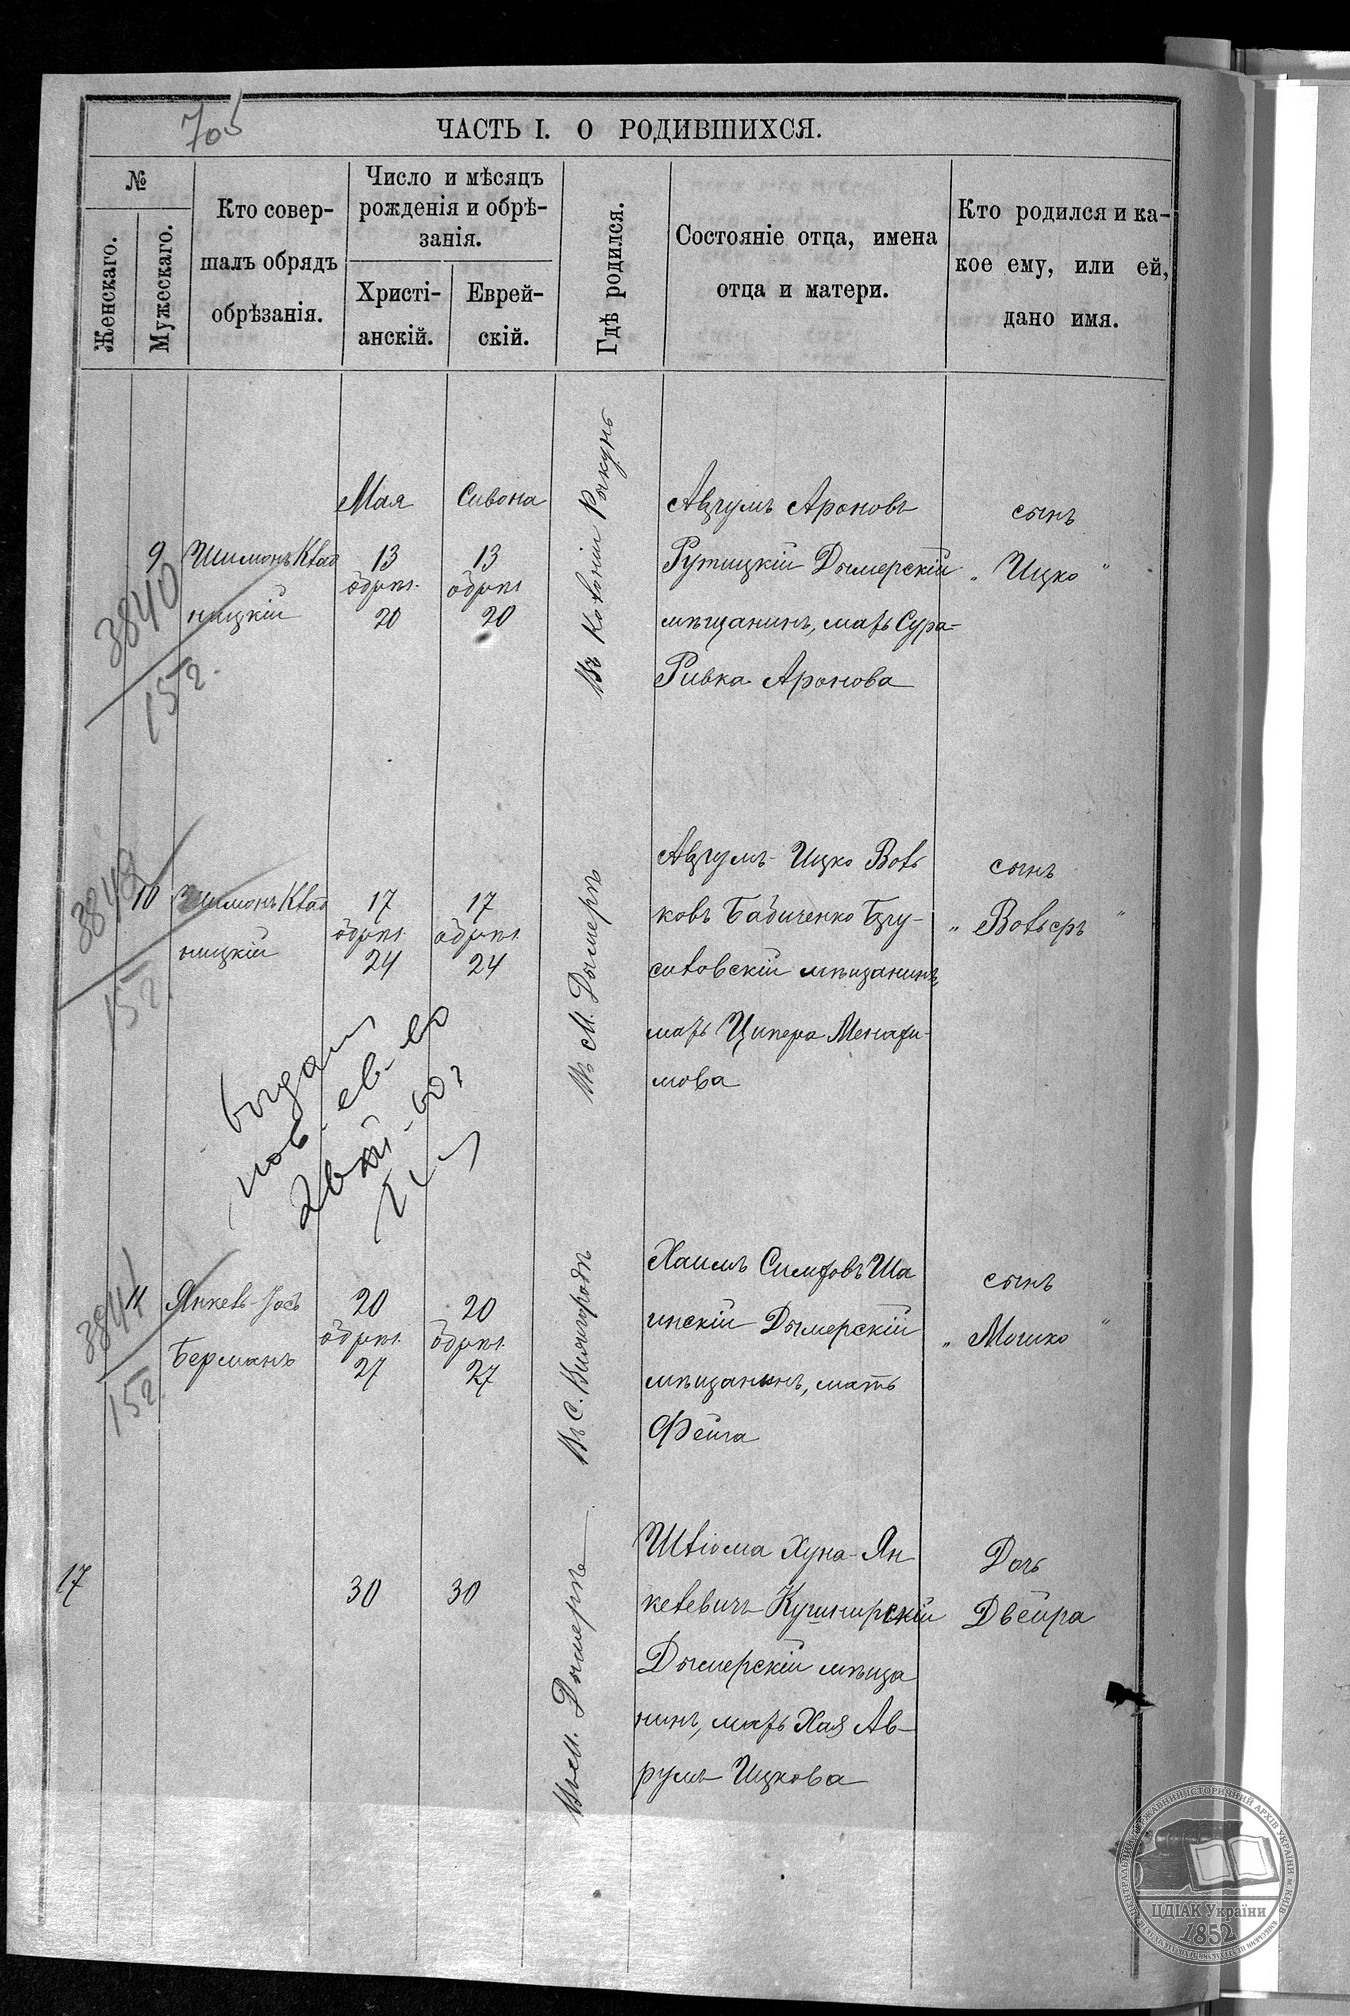 705
ЧАСТЬ I. О РОДИВШИХСЯ.
№
Женскаго.
Мужескаго.
Кто совер-
шалъ обрядъ
обрѣзанія.
Число и мѣсяцъ
рожденія и обрѣ-
занія.
Христі-
анскій.
Еврей-
скій.
Гдѣ родился.
Состояніе отца, имена
отца и матери.
Кто родился и ка-
кое ему, или ей,
дано имя.
9
3840
152.
Шимонъ Квас
ницкій
Мая
13
обрѣз.
20
Сивона
13
обрѣз.
20
Въ Колоніи Рыкунь
Авгумъ Ароновъ
Рутицкій Дымерскій
мѣщанинъ, мать Сура-
Ривка Аронова
сынъ
„ Ицко "
10
152.
Шимонъ Квас
ницкій
17
обрѣз.
24
17
обрѣз.
24
Въ М. Дымерѣ
Авгумъ-Ицко Вовь
ковъ Бабиченко
мѣщанинъ,
мать Ципера Менахи-
мова
сынъ
„ Вовьсръ "
11
3841
152.
Янкевъ-Іосъ
Берманъ
20
обрѣз.
27
20
обрѣз.
27
Въ С. Вышгородѣ
Хаимъ Симховъ Ша
инскій Дымерскій
мѣщанинъ, мать
Фейга
сынъ
„ Мошко "
17
30
30
Въ М. Дымерѣ
Шліома Хуна-Ян
келевичъ Кушнирскій
Дымерскій мѣща
нинъ, мать Хая Ав-
румъ Ицкова
Дочь
Двейра
ЦЕНТРАЛЬНИЙ ДЕРЖАВНИЙ ІСТОРИЧНИЙ АРХІВ УКРАЇНИ м. КИЇВ
ЦДІАК України
1852